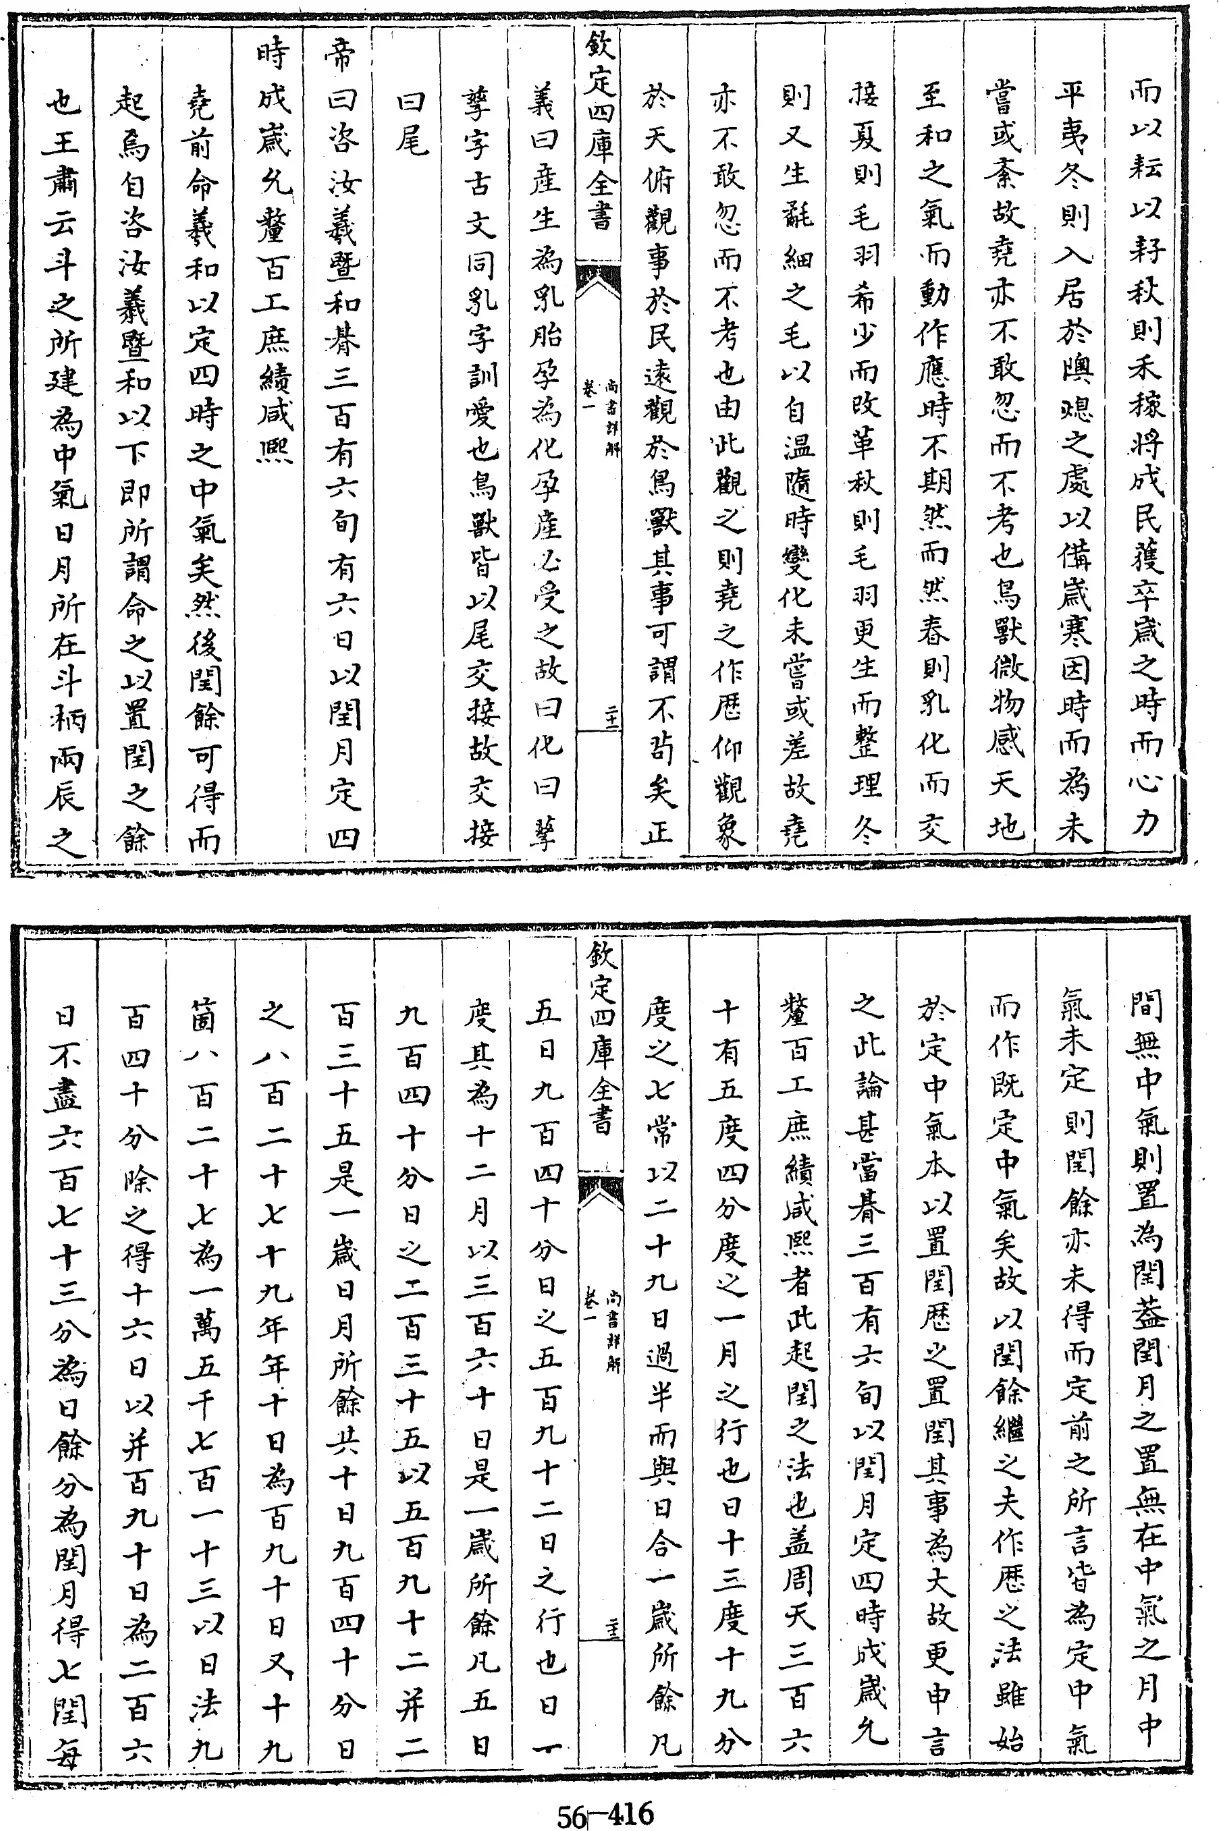 而以耘以耔秋則禾稼將成民獲卒歲之時而心力
平夷冬則入居於隩熄之處以備歲寒因時而為未
嘗或紊故堯亦不敢忽而不考也鳥獸微物感天地
至和之氣而動作應時不期然而然春則乳化而交
接夏則毛羽希少而改革秋則毛羽更生而整理冬
則又生氄細之毛以自温隨時變化未嘗或差故堯
亦不敢忽而不考也由此觀之則堯之作歴仰觀象
於天俯觀事於民遠觀於鳥獸其事可謂不苟矣正
欽定四庫全書
尚書詳解
卷一
二十一
義曰産生為乳胎孕為化孕産必受之故曰化曰孳
孳字古文同乳字訓愛也鳥獸皆以尾交接故交接
曰尾
帝曰咨汝羲暨和朞三百有六旬有六日以閏月定四
時成歲允釐百工庶績咸熙
堯前命羲和以定四時之中氣矣然後閏餘可得而
起焉自咨汝羲暨和以下即所謂命之以置閏之餘
也王肅云斗之所建為中氣日月所在斗柄兩辰之
間無中氣則置為閏葢閏月之置無在中氣之月中
氣未定則閏餘亦未得而定前之所言皆為定中氣
而作既定中氣矣故以閏餘繼之夫作歴之法雖始
於定中氣本以置閏歴之置閏其事為大故更申言
之此論甚當朞三百有六旬以閏月定四時成歲允
釐百工庶績咸熙者此起閏之法也盖周天三百六
十有五度四分度之一月之行也日十三度十九分
度之七常以二十九日過半而與日合一歲所餘凡
欽定四庫全書
尚書詳解
卷一
二十二
五日九百四十分日之五百九十二日之行也日一
度其為十二月以三百六十日是一歲所餘凡五日
九百四十分日之二百三十五以五百九十二并二
百三十五是一歲日月所餘共十日九百四十分日
之八百二十七十九年年十日為百九十日又十九
箇八百二十七為一萬五千七百一十三以日法九
百四十分除之得十六日以并百九十日為二百六
日不盡六百七十三分為日餘分為閏月得七閏每
56-416